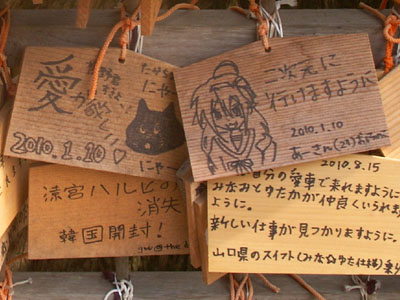 愛
が欲しい
にゃー
2010.1.10♡
にゃー
二次元に
行けますように
2010.1.10
あーさん(23)
涼宮ハルヒの
消失
韓国開封!
2010.8.15
自分の愛車で来れますように
みなみとゆたかが仲良くいられますように。
新しい仕事が見つかりますように。
山口県のスイフト(みな☆ゆた仕様)乗り